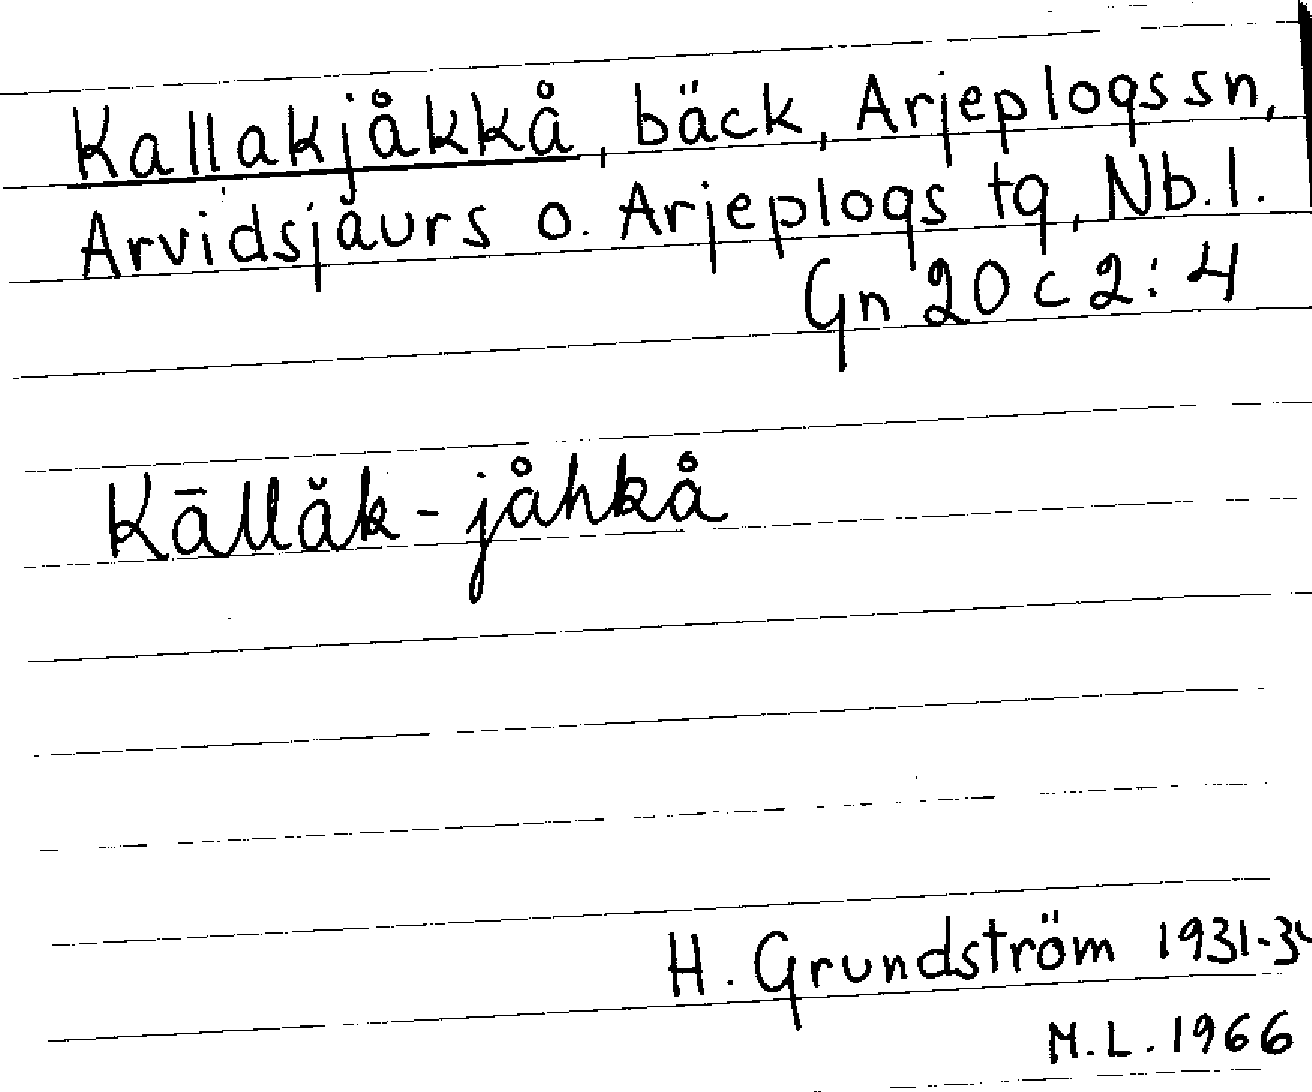 Kallakjåkkå, bäck, Arjeplogs sn,
Arvidsjaurs o. Arjeplogs tg, Nb. l.
Gn 20 c 2:4
Kāllăk-jåhkå
H. Grundström 1931-
M.L. 1966